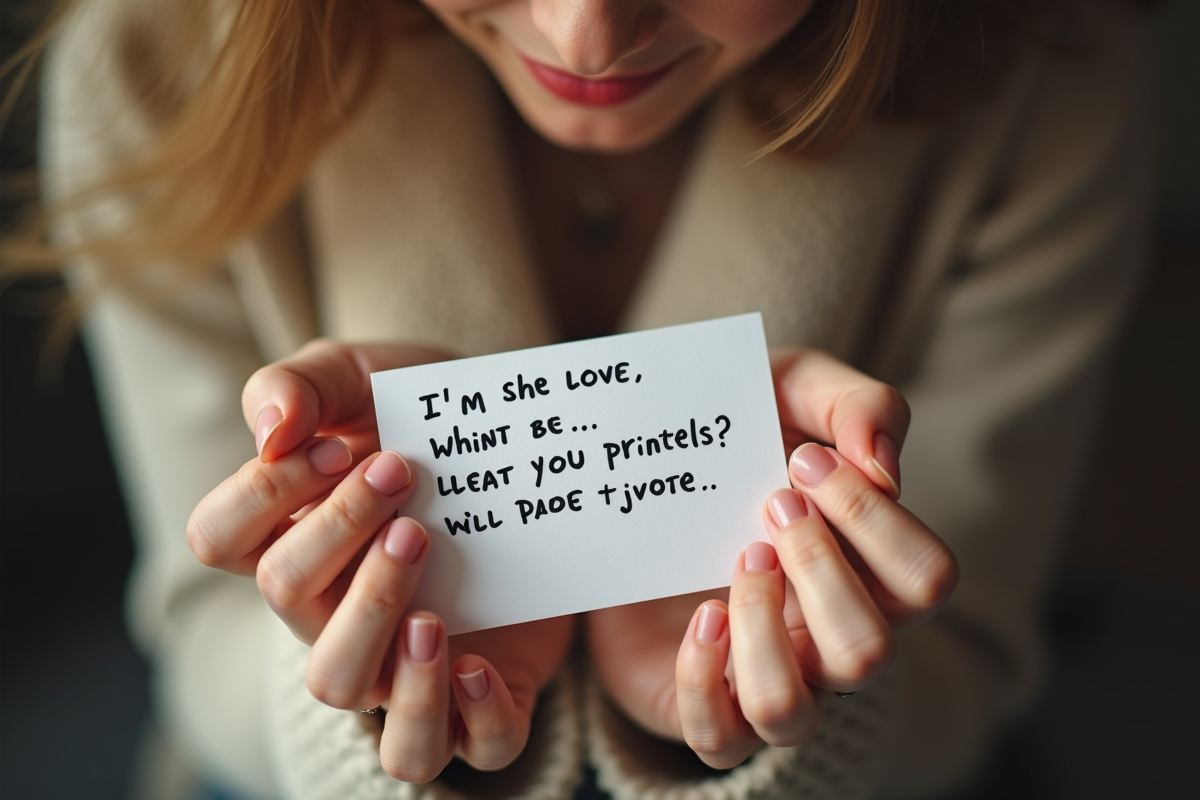 I'M She LOVE,
WhiNT BE...
LLEAT YOU printels?
WiLL PAOE tjvOTE..